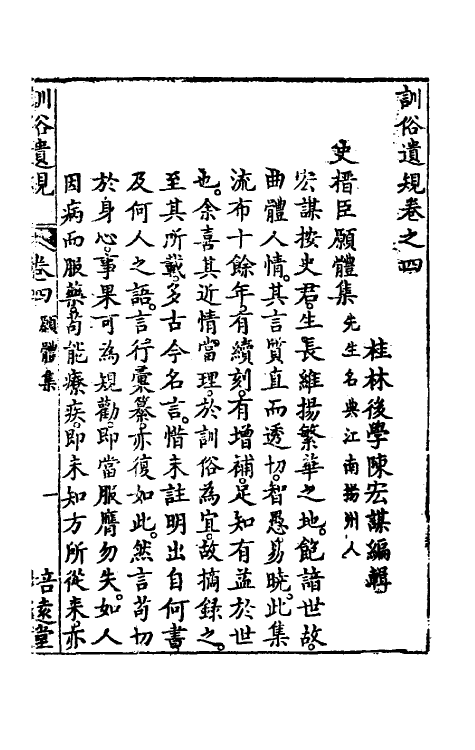 訓俗遺規卷之四
桂林後學陳宏謀編輯
史搢臣願體集 先生名典江南揚州人
宏謀按史君生長維揚繁華之地。飽諳世故。
曲體人情。其言質直而透切。智愚易曉。此集
流布十餘年。有續刻。有增補。足知有益於世
也。余喜其近情當理。於訓俗為宜。故摘錄之。
至其所載。多古今名言。惜未註明出自何書
及何人之語。言行彙纂。亦復如此。然言苟切
於身心。事果可為規勸。即當服膺勿失。如人
因病而服藥。苟能療疾。即未知方所從來。亦
訓俗遺規 卷四 願體集 一 培遠堂